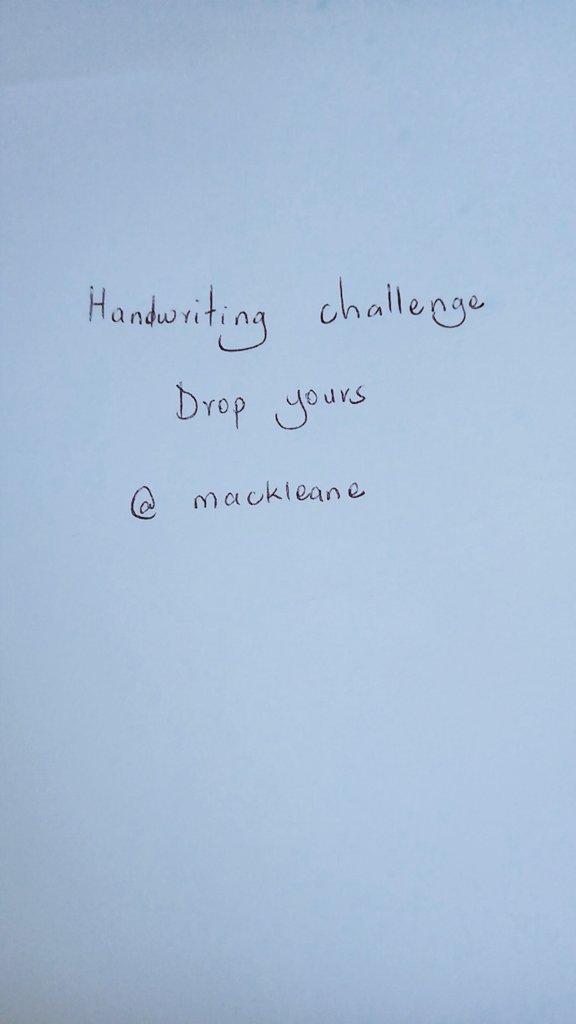 Handwriting challenge
Drop yours
@ mackleane